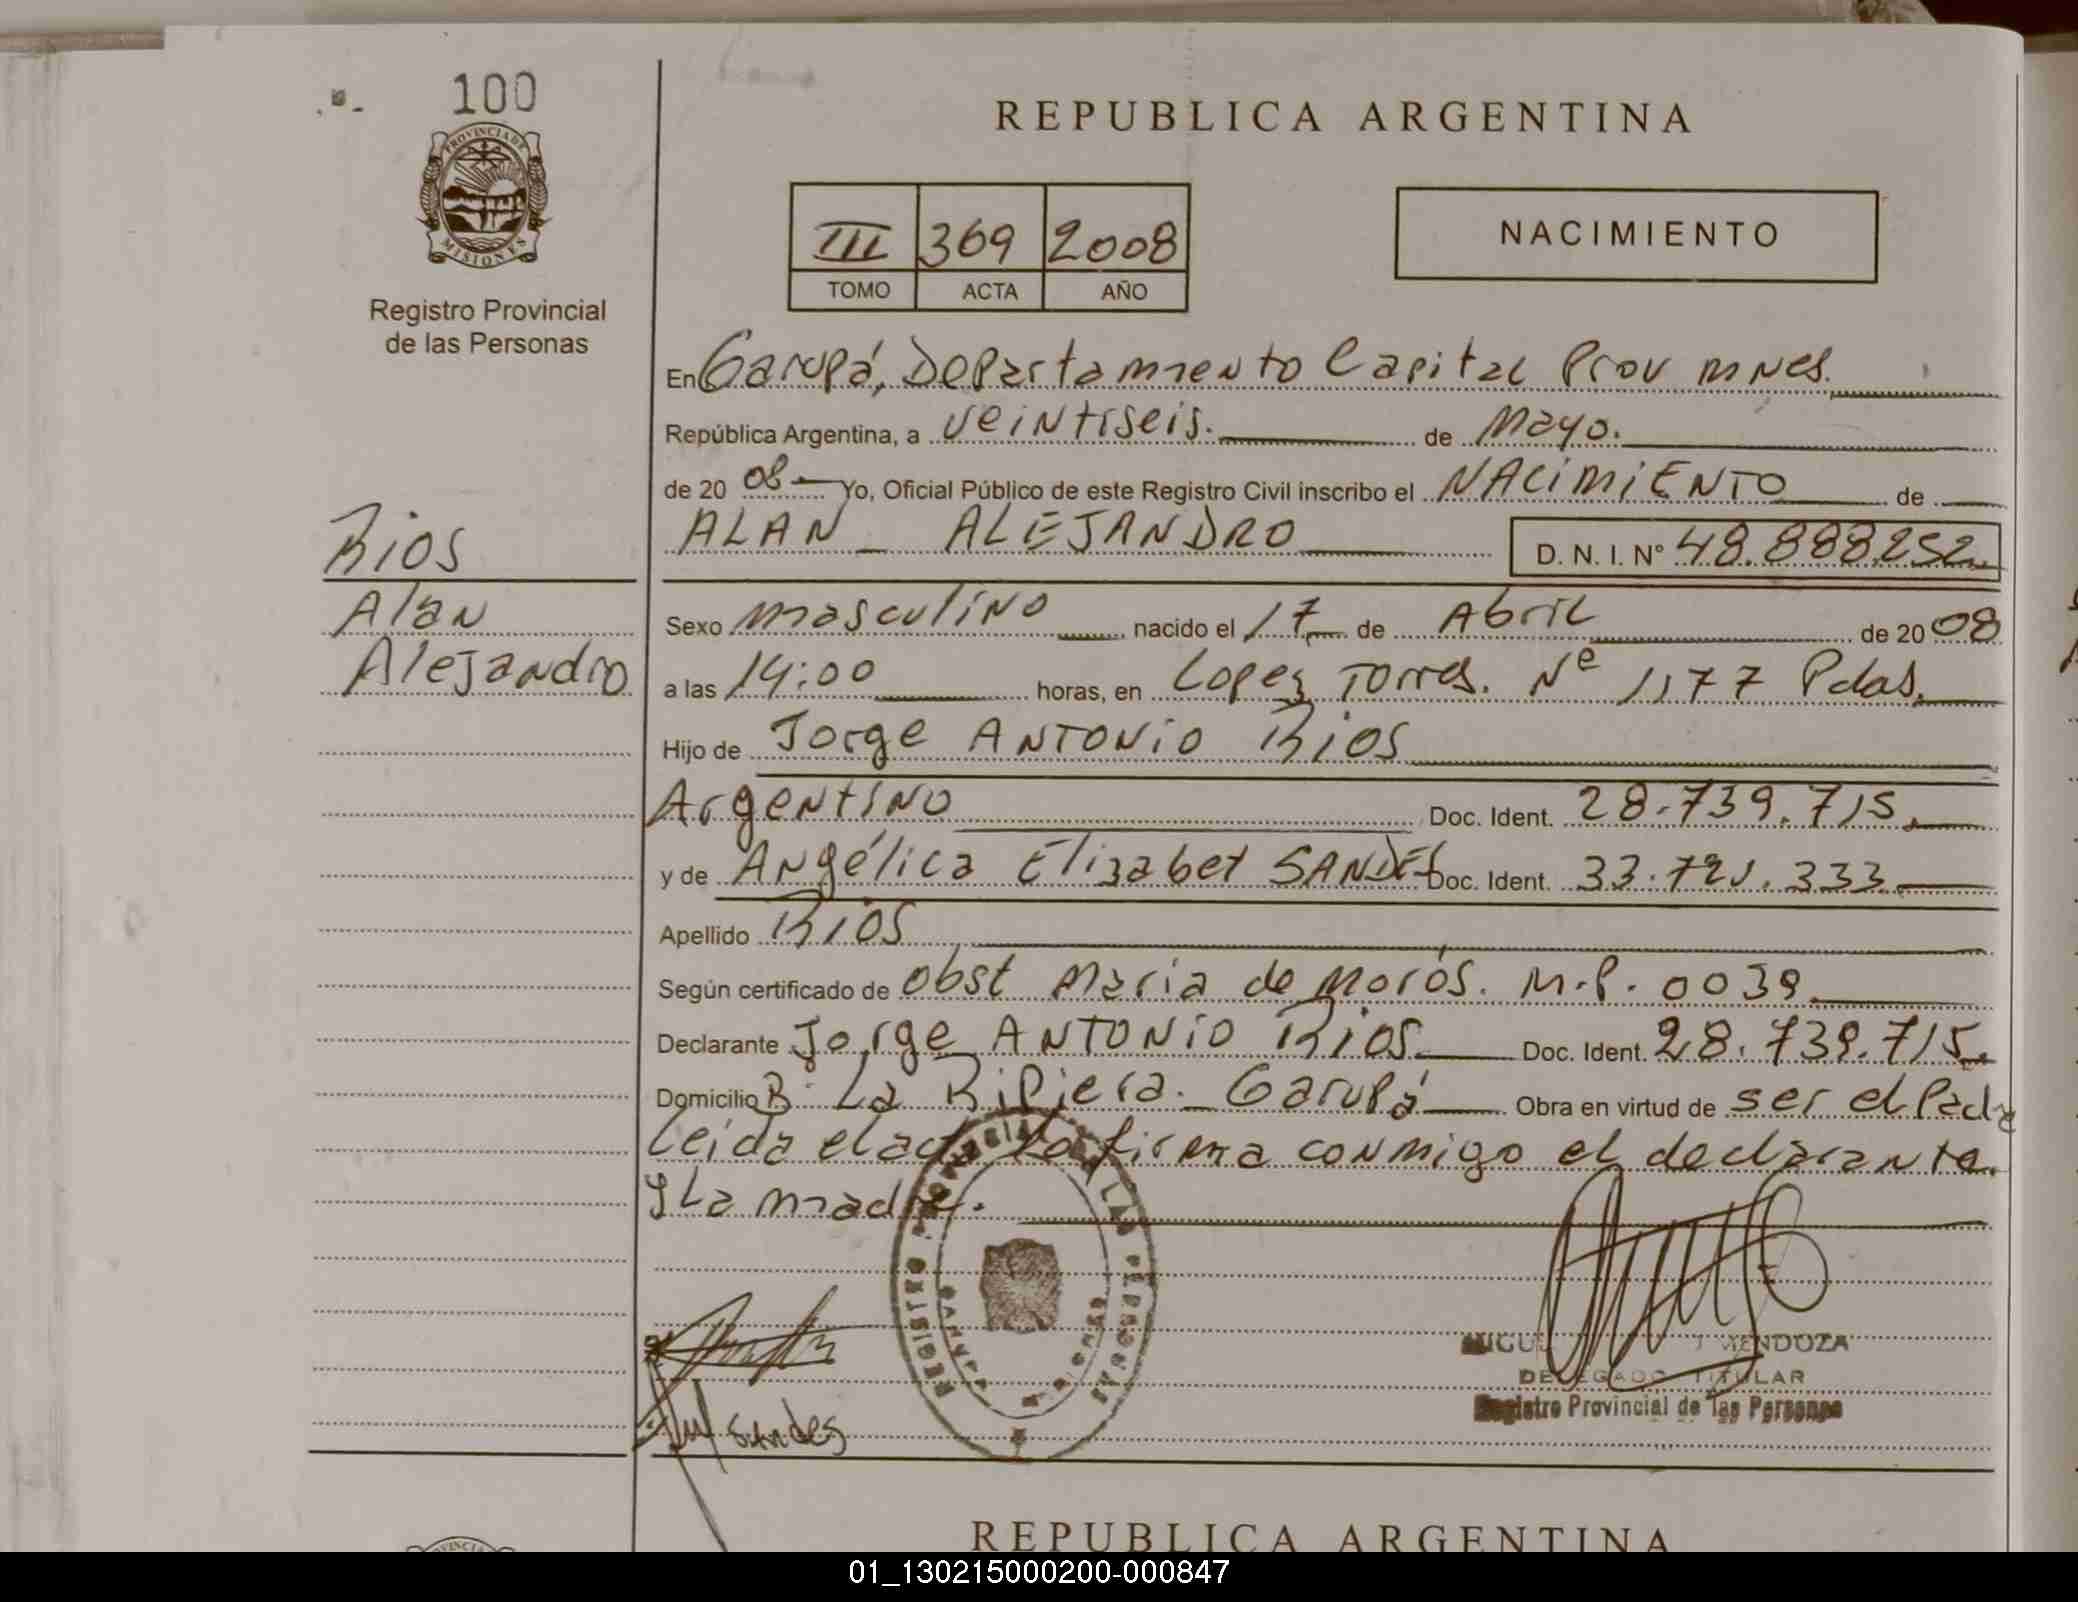 100
PROVINCIA DE
MISIONES
Registro Provincial
de las Personas
REPUBLICA ARGENTINA
III 369 2008
TOMO ACTA AÑO
NACIMIENTO
En Garupá, Departamento Capital Prov mnes.
República Argentina, a veintiseis. de Mayo.
de 20 08 Yo, Oficial Público de este Registro Civil inscribo el NACIMIENTO de
Rios
ALAN ALEJANDRO D. N. I. N° 48.888.252
Alan
Alejandro
Sexo masculino nacido el 17 de Abril de 20 08
a las 14:00 horas, en Lopez Torres. Nº 1177 Pdas.
Hijo de Jorge ANTONIO Rios
Argentino Doc. Ident. 28.739.715.
y de Angélica Elizabet SANDES Doc. Ident. 33.721.333
Apellido Rios
Según certificado de obst Maria de Morós. M.P. 0039
Declarante Jorge ANTONIO Rios Doc. Ident. 28.739.715.
Domicilio B: La Ribiera. Garupá Obra en virtud de ser el Padre
Leida el acta la firma conmigo el declarante
y La madre.
REGISTRO PROVINCIAL DE LAS PERSONAS
GARUPA
Sandes
MENDOZA
DELEGADO TITULAR
Registro Provincial de las Personas
REPUBLICA ARGENTINA
01_130215000200-000847